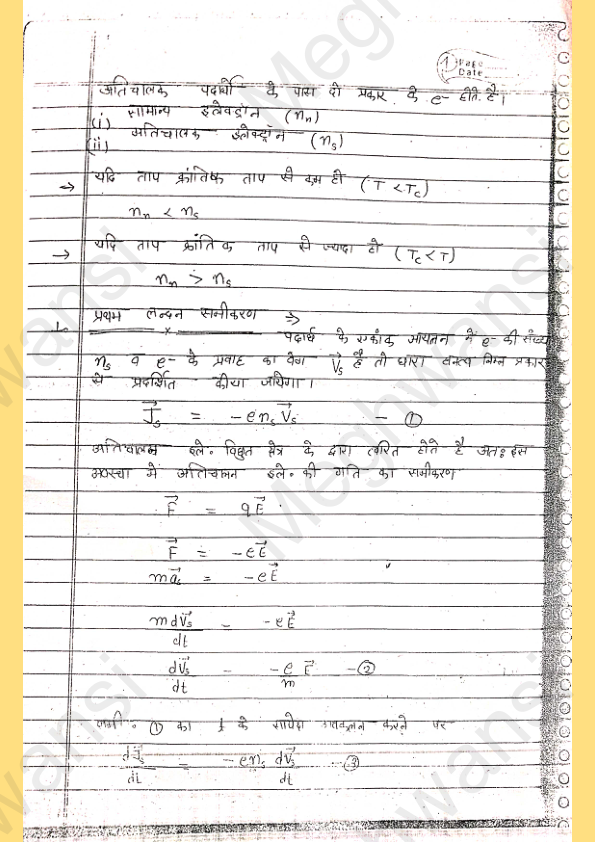 1 Page
Date
अतिचालक पदार्थो के पास दो प्रकार के e- होते है।
(i) सामान्य इलेक्ट्रॉन (nn)
(ii) अतिचालक इलेक्ट्रॉन (ns)
→ यदि ताप क्रांतिक ताप से कम हो (T < Tc)
nn < ns
→ यदि ताप क्रांतिक ताप से ज्यादा हो (Tc < T)
nn > ns
प्रथम लन्दन समीकरण ⇒
पदार्थ के एकांक आयतन में e- की संख्या
ns व e- के प्रवाह का वेग V⃗s है तो धारा घनत्व निम्न प्रकार
से प्रदर्शित कीया जायेगा।
J⃗s = -e ns V⃗s - ①
अतिचालन इले॰ विद्युत क्षेत्र के द्वारा त्वरित होते है अतः इस
अवस्था मे अतिचालन इले॰ की गति का समीकरण
F⃗ = qE⃗
F⃗ = -eE⃗
ma⃗s = -eE⃗
mdV⃗s/dt = -eE⃗
dV⃗s/dt = -e/m E⃗ -②
समी॰ ① का t के सापेक्ष अवकलन करने पर
dJ⃗s/dt = -ens dV⃗s/dt -③
Meghwansi